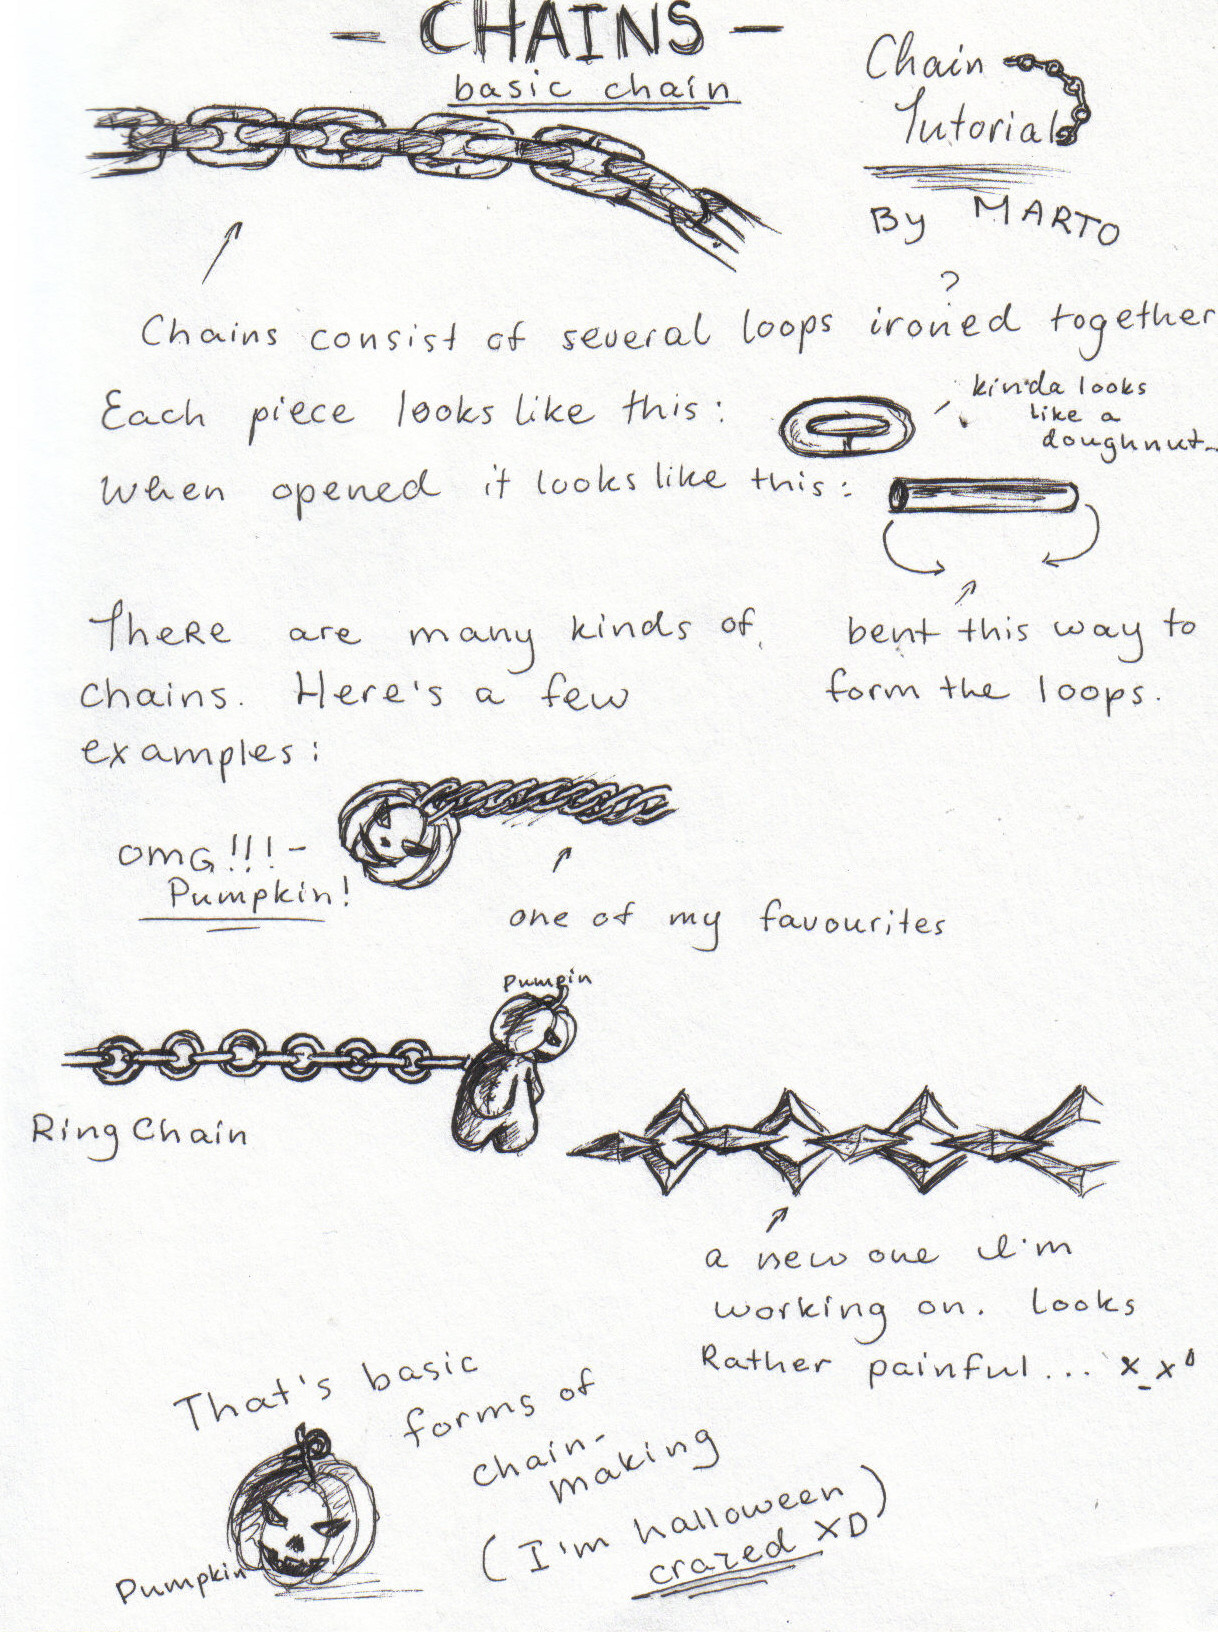 - CHAINS -
basic chain
Chain
Tutorial
By MARTO
?
Chains consist of several loops ironed together
Each piece looks like this:
kinda looks
like a
doughnut...
When opened it looks like this:
bent this way to
form the loops.
There are many kinds of
chains. Here's a few
examples:
OMG!!! -
Pumpkin!
one of my favourites
Pumpin
Ring Chain
a new one I'm
working on. Looks
Rather painful... x_x'
That's basic
forms of
chain-
making
(I'm halloween
crazed XD)
Pumpkin